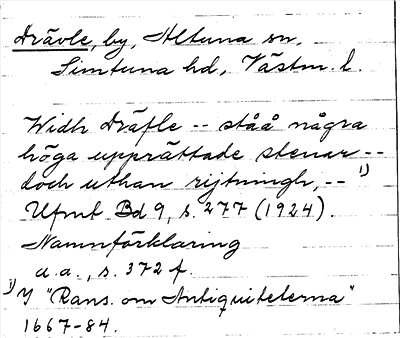 Drävle, by, Altuna sn,
Simtuna hd, Västm. l.
Widh Dräfle -- ståå några
höga upprättade stenar --
doch uthan rijtningh, -- 1)
Ufmt Bd 9, s. 277 (1924).
Namnförklaring
a.a., s. 372 f.
1) I "Rans. om Antiquiteterna"
1667-84.